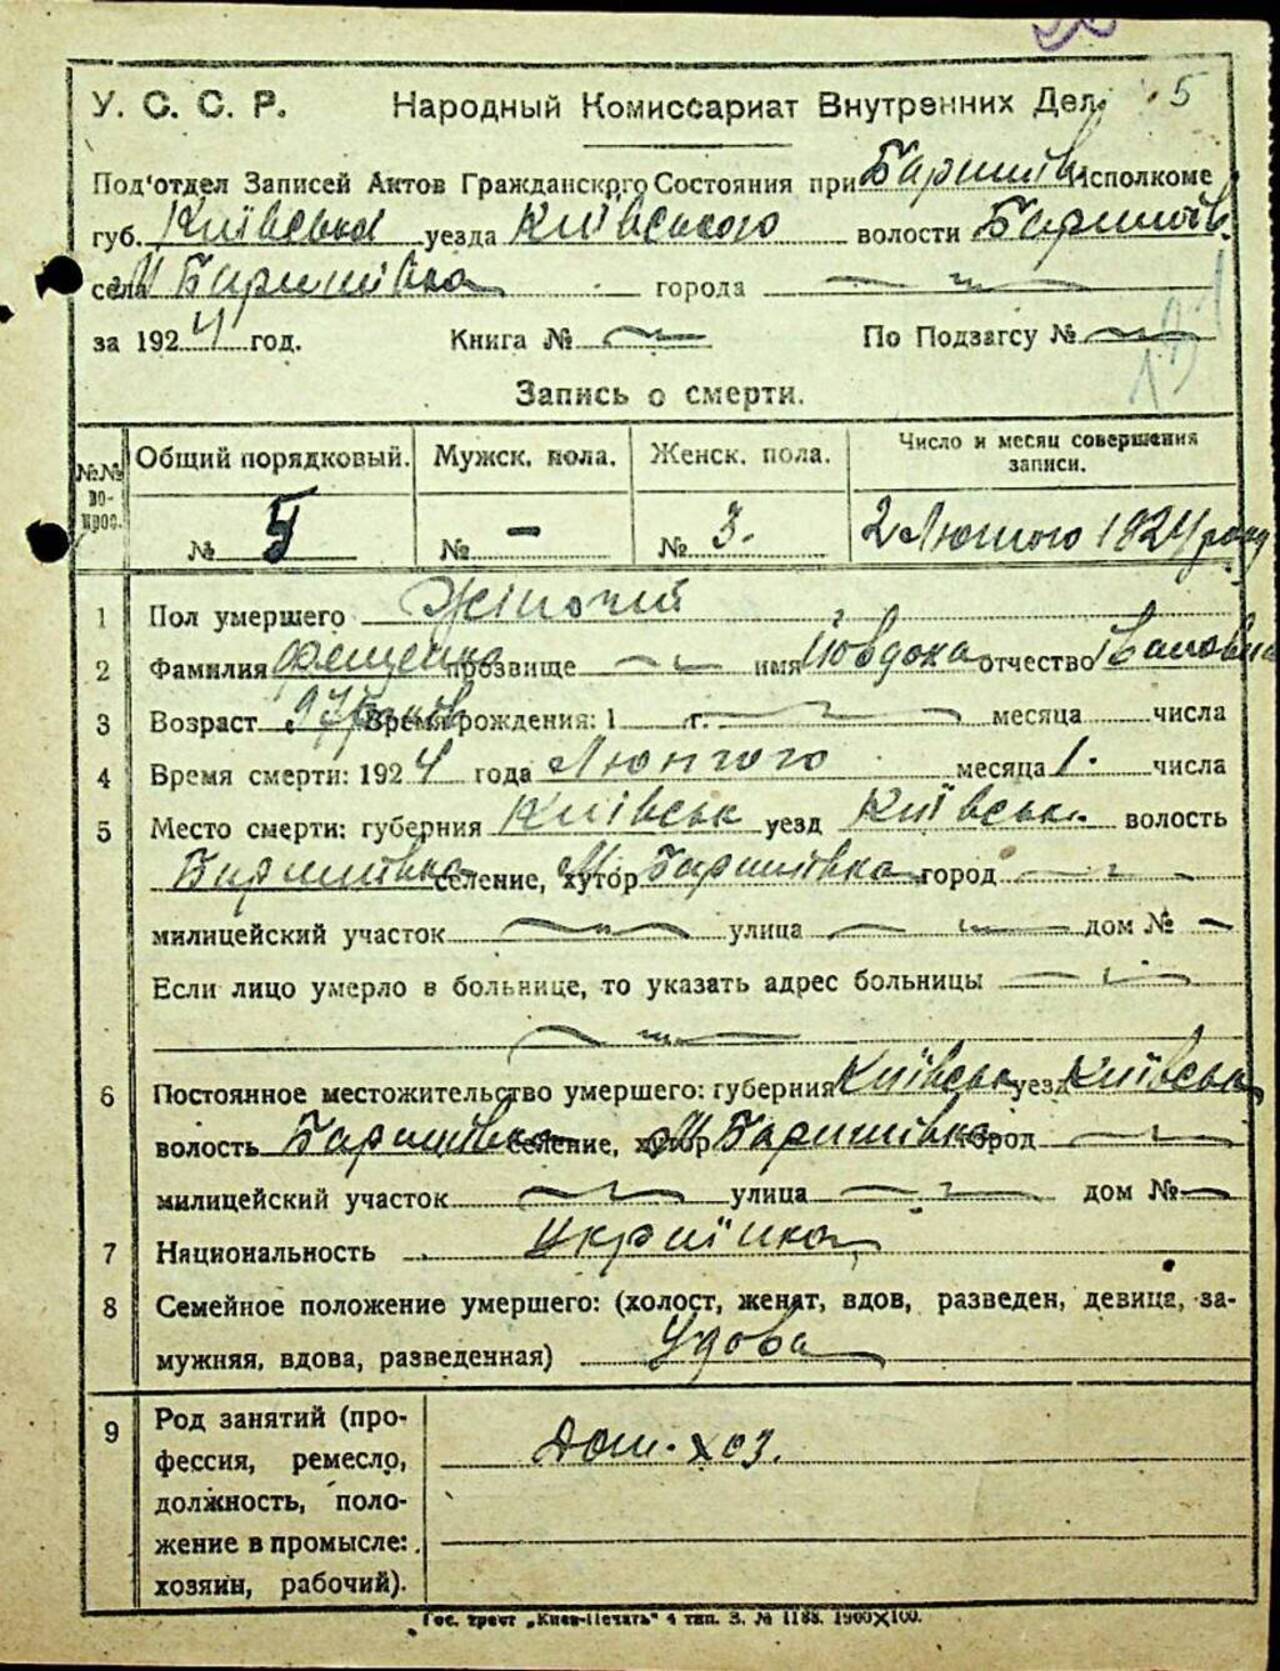 5
У. С. С. Р. Народный Комиссариат Внутренних Дел.
Под'отдел Записей Актов Гражданского Состояния при Баришів. Исполкоме
губ. Київської уезда Київського волости Баришів.
села М Баришівка города
за 1924 год. Книга № По Подзагсу №
Запись о смерти.
№№ вопрос. Общий порядковый. Мужск. пола. Женск. пола. Число и месяц совершения записи.
№ 5 № - № 3. 2 Лютого 1924 року
1 Пол умершего Жіночий
2 Фамилия Фещенко прозвище имя Йовдоха отчество Івановна
3 Возраст 97 років Время рождения: 1 г. месяца числа
4 Время смерти: 1924 года Лютого месяца 1. числа
5 Место смерти: губерния Київськ уезд Київськ. волость
Баришівка селение, хутор М. Баришівка город
милицейский участок улица дом № -
Если лицо умерло в больнице, то указать адрес больницы
6 Постоянное местожительство умершего: губерния Київськ уезд Київськ
волость Баришівка селение, хутор М Баришівка город
милицейский участок улица дом № -
7 Национальность Українка
8 Семейное положение умершего: (холост, женат, вдов, разведен, девица, за-
мужняя, вдова, разведенная) Удова
9 Род занятий (про-
фессия, ремесло,
должность, поло-
жение в промысле:
хозяин, рабочий).
Дом. хоз.
Гос. трест „Киев-Печать" 4 тип. З. № 1188. 1900×100.